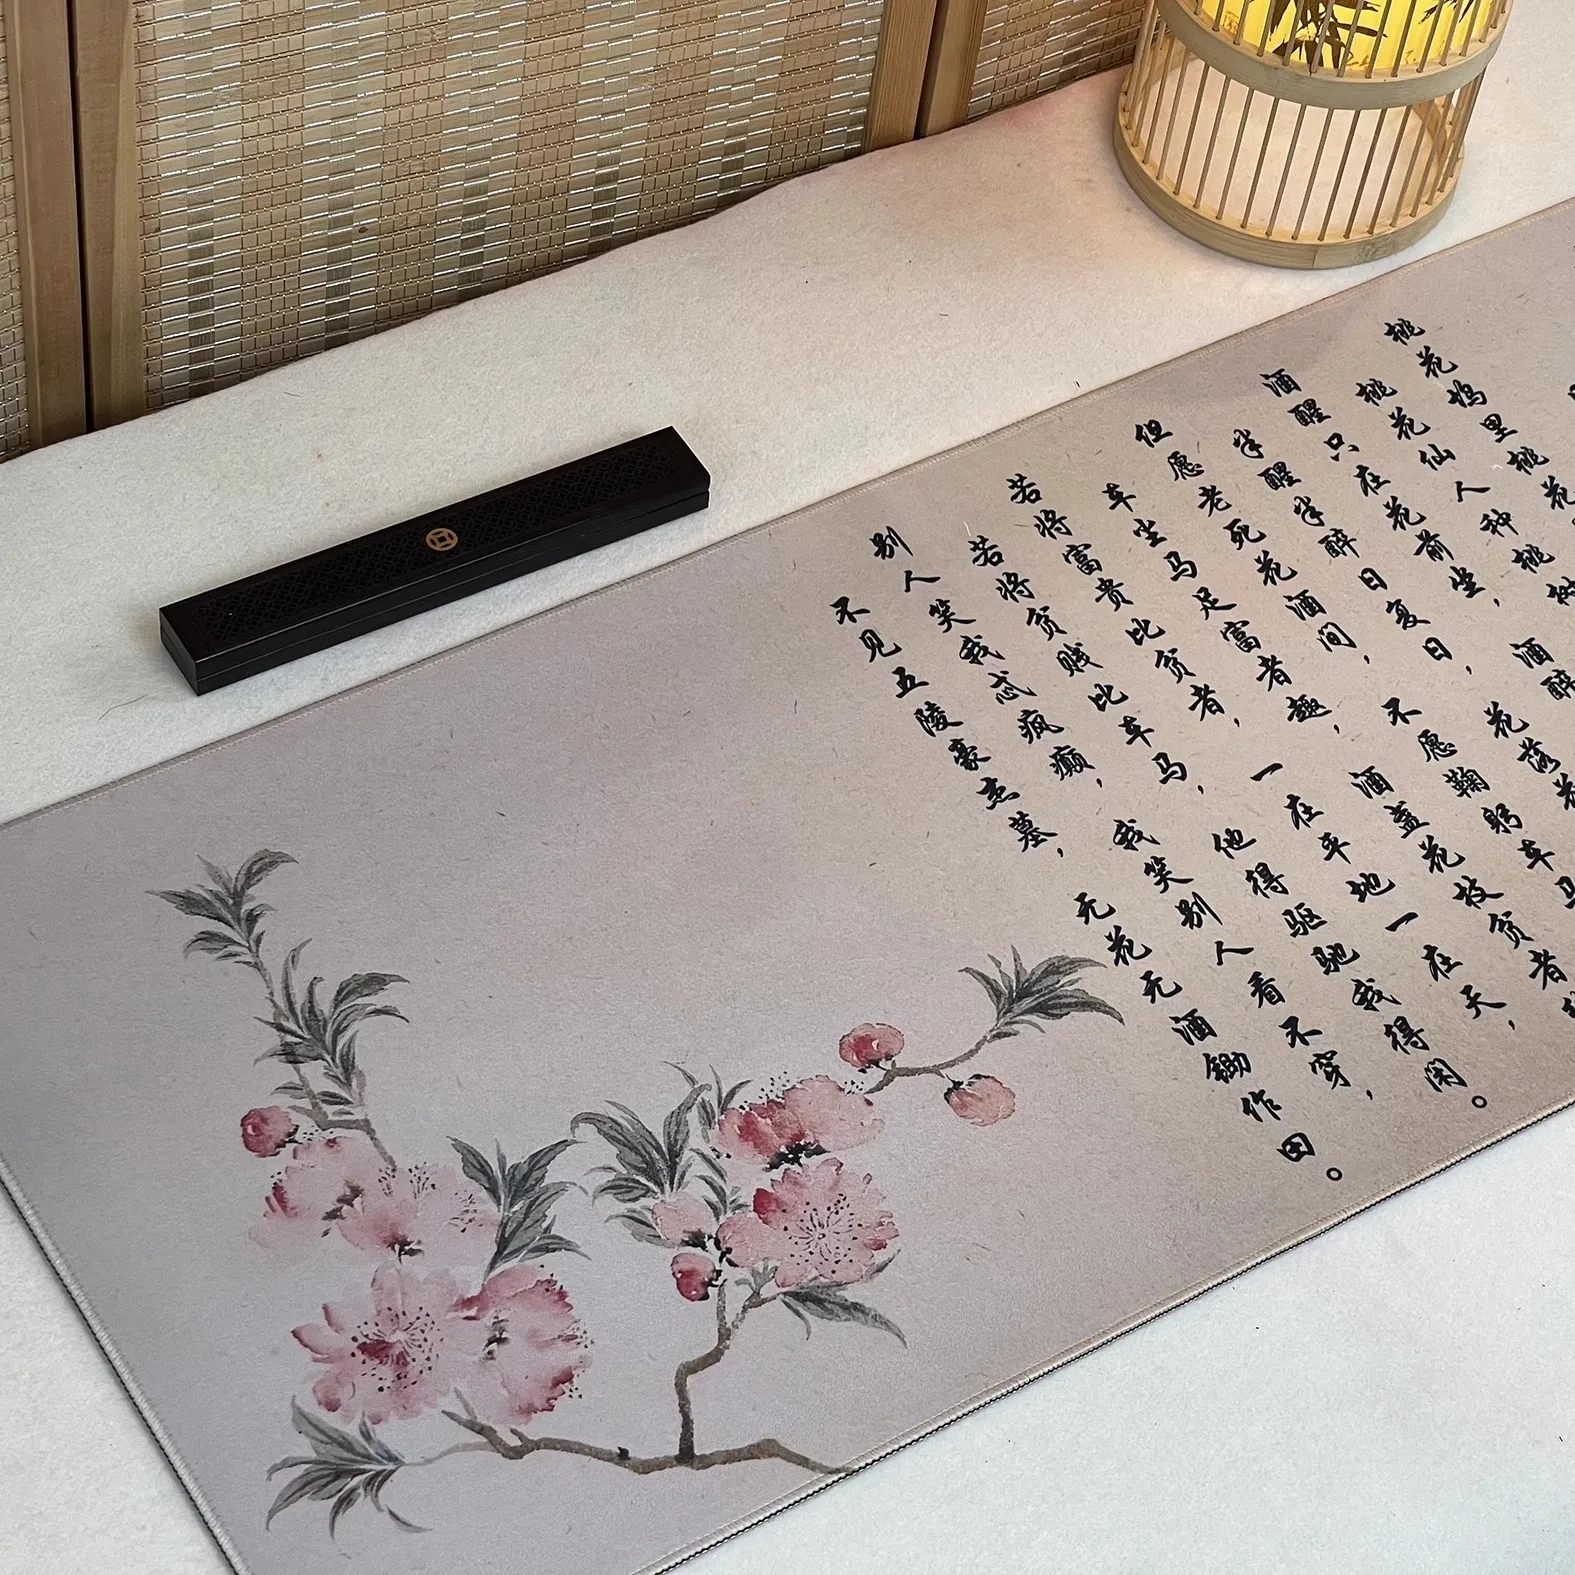 桃花坞里桃花
桃花仙人种桃树
酒醒只在花前坐，酒醉
半醒半醉日复日，花落花
但愿老死花酒间，不愿鞠躬车马
车尘马足富者趣，酒盏花枝贫者
若将富贵比贫者，一在平地一在天，
若将贫贱比车马，他得驱驰我得闲。
别人笑我忒疯癫，我笑别人看不穿，
不见五陵豪杰墓，无花无酒锄作田。